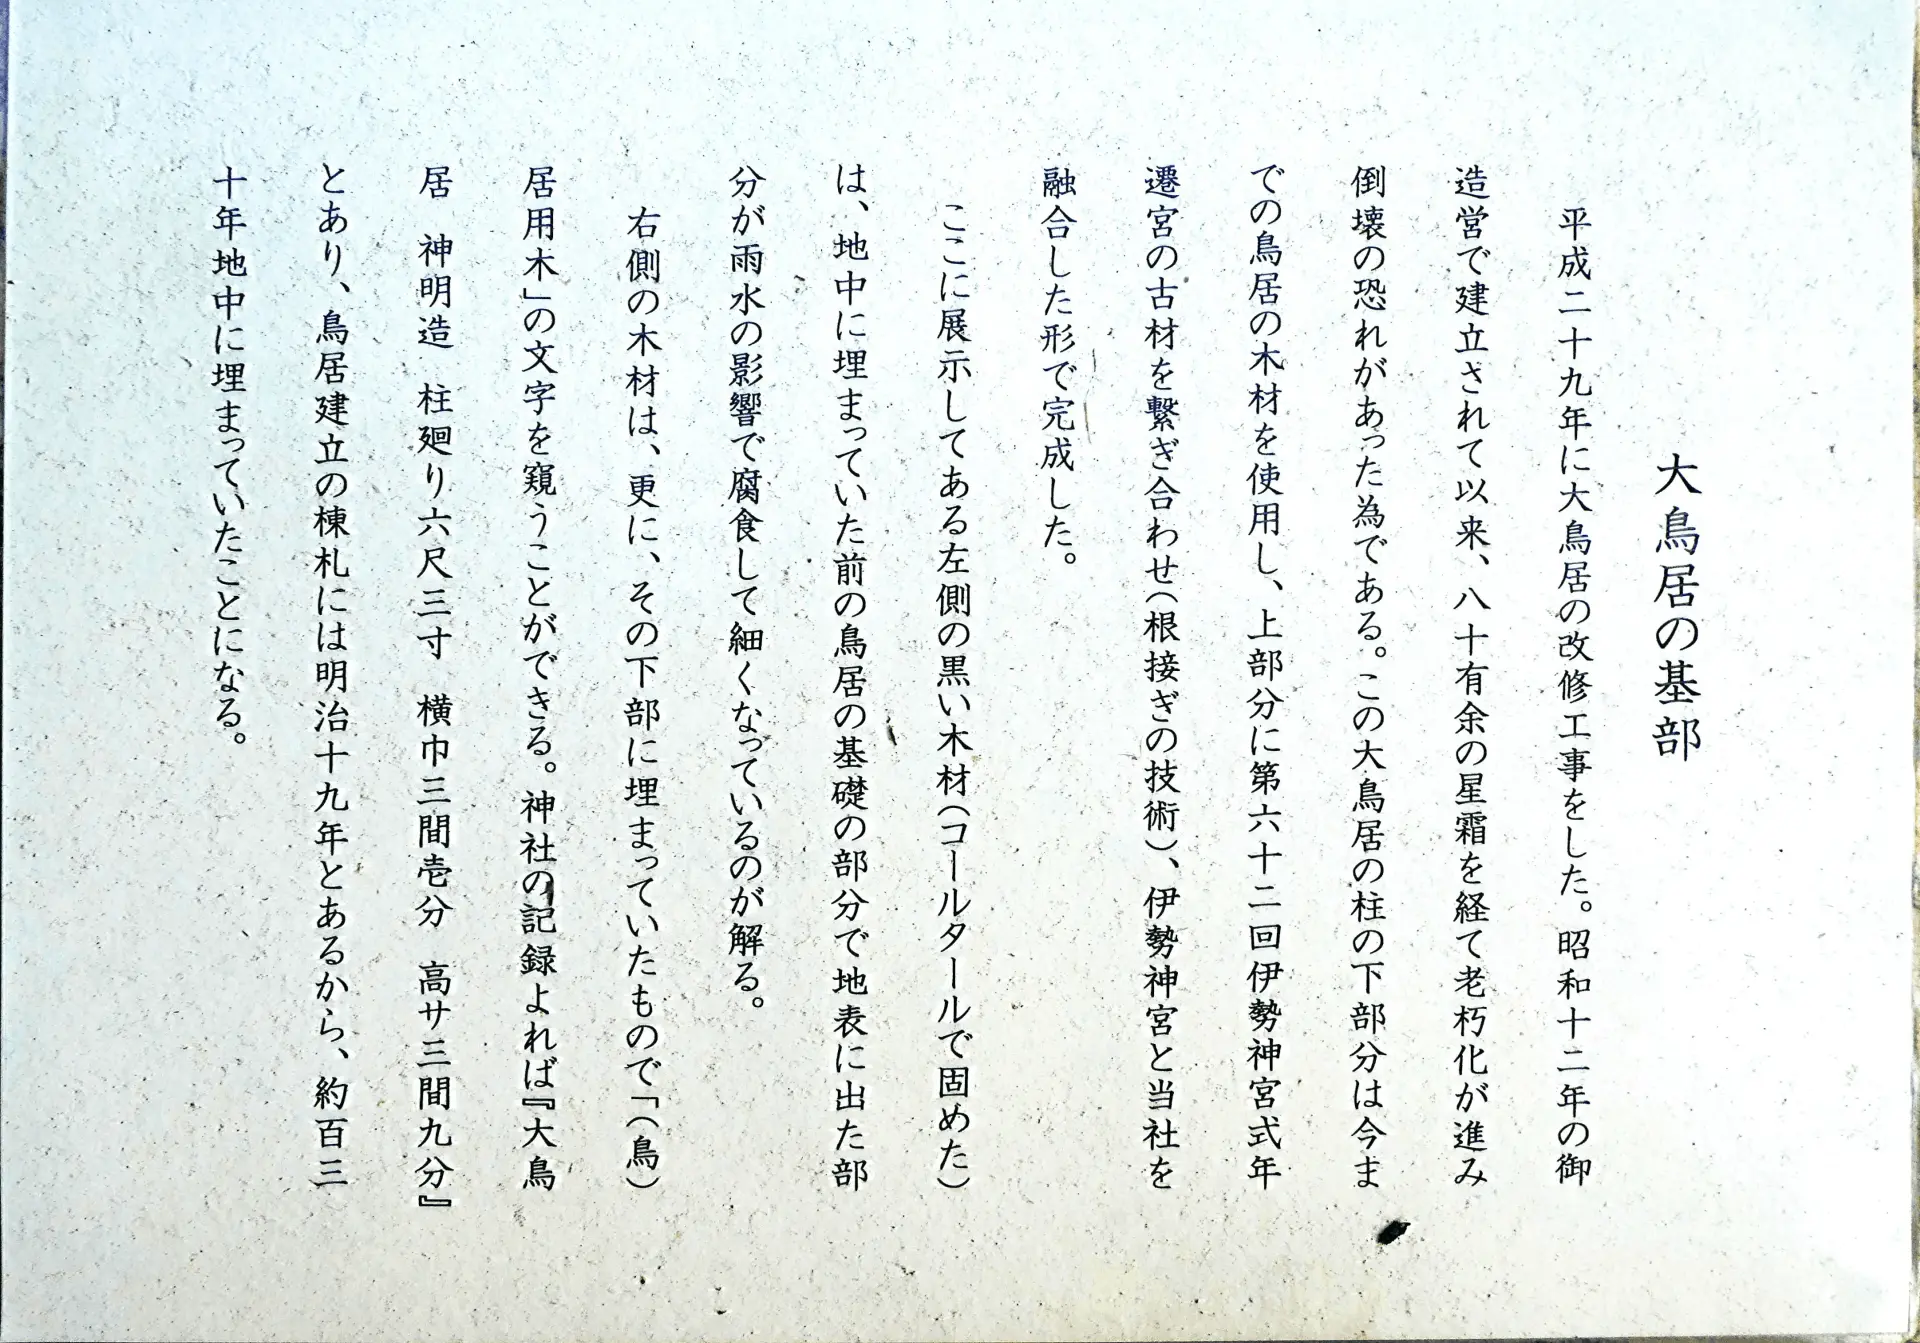 大鳥居の基部
平成二十九年に大鳥居の改修工事をした。昭和十二年の御
造営で建立されて以来、八十有余の星霜を経て老朽化が進み
倒壊の恐れがあった為である。この大鳥居の柱の下部分は今ま
での鳥居の木材を使用し、上部分に第六十二回伊勢神宮式年
遷宮の古材を繋ぎ合わせ（根接ぎの技術）、伊勢神宮と当社を
融合した形で完成した。
ここに展示してある左側の黒い木材（コールタールで固めた）
は、地中に埋まっていた前の鳥居の基礎の部分で地表に出た部
分が雨水の影響で腐食して細くなっているのが解る。
右側の木材は、更に、その下部に埋まっていたもので「（鳥）
居用木」の文字を窺うことができる。神社の記録よれば『大鳥
居　神明造　柱廻り六尺三寸　横巾三間壱分　高サ三間九分』
とあり、鳥居建立の棟札には明治十九年とあるから、約百三
十年地中に埋まっていたことになる。